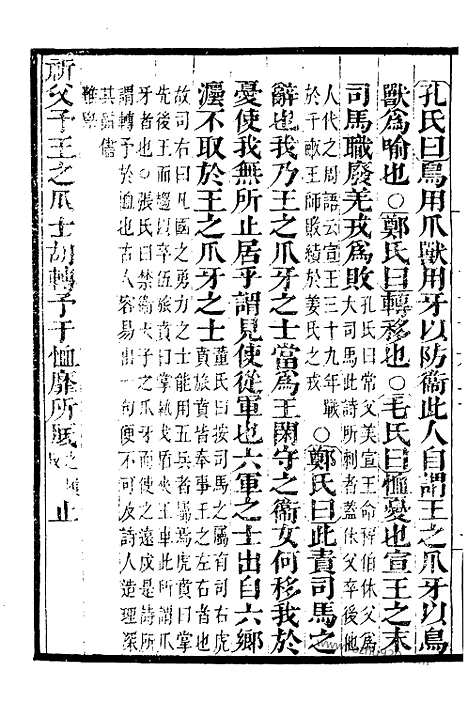 孔氏曰鳥用爪獸用牙以防衞此人自謂王之爪牙以鳥
獸爲喻也○鄭氏曰轉移也○毛氏曰恤憂也宣王之末
司馬職廢羌戎爲敗孔氏曰常父美宣王命程伯休父爲
大司馬此詩所刺者蓋休父卒後他
人代之周語云宣王三十九年戰
于千畝王師敗績於姜氏之戎○鄭氏曰此責司馬之
辭也我乃王之爪牙之士當爲王閑守之衞女何移我於
憂使我無所止居乎謂見使從軍也六軍之士出自六鄉
灋不取於王之爪牙之士董氏曰司馬之屬有司右虎
賁旅賁皆奉事王之左右者也
故司右曰凡國之勇力之士能用五兵者屬焉虎賁曰掌
先後王而趨以卒伍旅賁曰掌執戈盾夾王車此所謂爪
牙者也○張氏曰禁衞天子之爪牙而使之遠戍是詩所
謂轉予於恤也古人容易出一句便不可及詩人造理深
其餘儒
難學
祈父予王之爪士胡轉予于恤靡所厎止